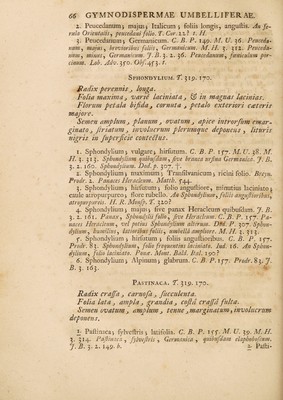 66 GYMNODISPERMAE UMBELLIFERAE.
2. Peucedanum; majus; Italicum; foliis longis, angustis. An ferula Orientalis, peucedani folio. T. Cor. 22? 1. H.
3. Peucedanum; Germanicum. C. B. P. 149. M. U. 36. Peucedanum, majus, brevioribus foliis, Germanicum. M. H. 3. 312. Peucedanum, minus, Germanicum. J. B. 3. 2. 36. Peucedanum, fœniculum porcinum. Lob. Adv. 350. Obs. 453. 1.
SPHONDYLIUM. T. 319. 170.
Radix perennis, longa.
Folia maxima, varie laciniata, & in magnas lacinias.
Florum petala bifida, cornuta, petalo exteriori cæteris
majore.
Semen amplum, planum, ovatum, apice introrsum emarginato, striatum, involucrum plerumque deponens, lituris
nigris in superficie contectus.
1. Sphondylium; vulgare, hirsutum. C. B. P. 157. M. U. 38. M. H. 3. 313. Sphondylium quibusdam, sive branca ursina Germanica. J. B. 3. 2. 160. Sphondylium. Dod. p. 307. †.
2. Sphondylium; maximum; Transilvanicum; ricini folio. Breyn. Prodr. 2. Panaces Heracleum. Matth. 544.
3. Sphondylium; hirsutum; folio angustiore, minutius laciniato; caule atropurpureo; flore rubello. An Sphondylium, foliis angustioribus, atropurpureis. H. R. Monsp. T. 320?
4. Sphondylium; majus; sive panax Heracleum quibusdam. J. B. 3. 2. 161. Panax, Sphondylii folio, sive Heracleum. C. B. P. 157. Panaces Heracleum, vel potius Sphondylium alterum. Dod. P. 307. Sphondylium, humilius, latioribus foliis, umbella ampliore. M. H. 3. 313.
5. Sphondylium; hirsutum; foliis angustioribus. C. B. P. 157. Prodr. 83. Sphondylium, folio serpentino laciniato. Ind. 16. An Sphondylium, folio laciniato. Pone. Mont. Bald. Ital. 190?
6. Sphondylium; Alpinum; glabrum. C. B. P. 157. Prodr. 83. J. B. 3. 163.
PASTINACA. T. 319. 170.
Radix crassa, carnosa, succulenta.
Folia lata, ampla, grandia, costa crassa fulta.
Semen ovatum, amplum, tenue, marginatum, involucrum
deponens.
1. Pastinaca; sylvestris; latifolia. C. B. P. 155. M. U. 39. M. H. 3. 314. Pastinaca, sylvestris, Germanica, quibusdam elaphoboscum. J. B. 3. 2. 149. b.
2. Pasti-